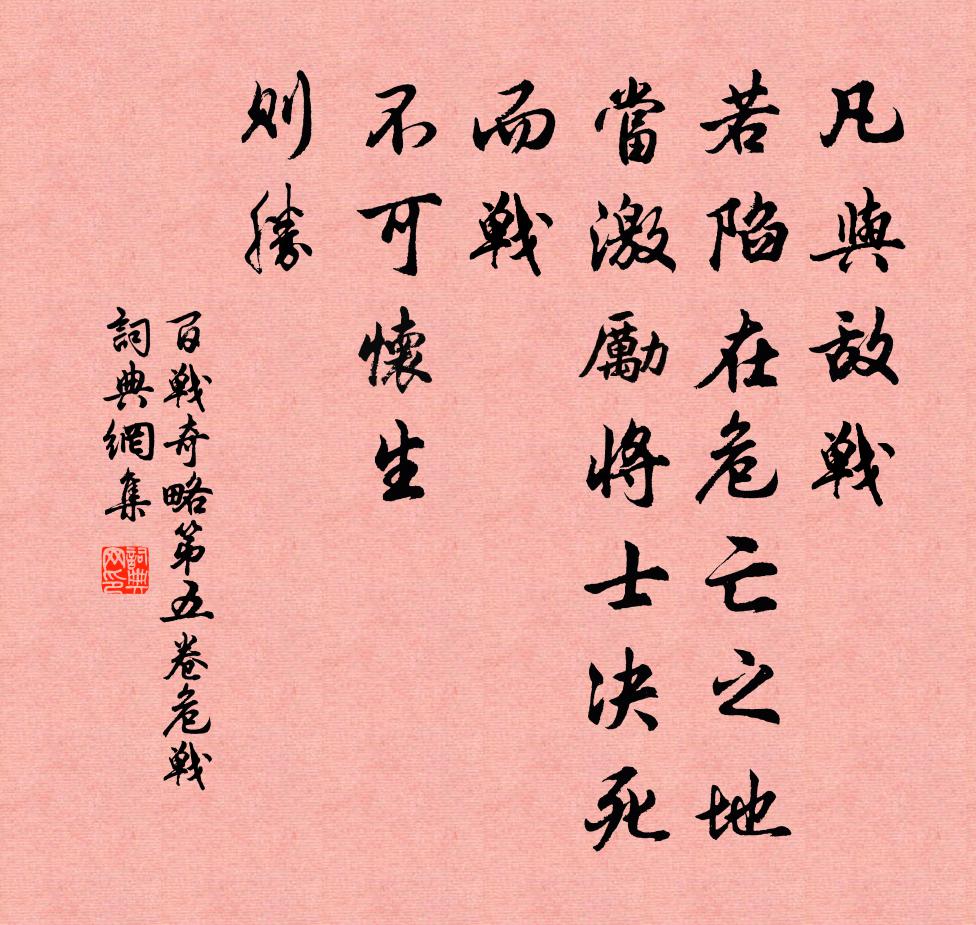 凡與敌戰
若陷在危亡之地
當激勵將士决死
而戰
不可懷生
则勝
百戰奇略第五卷危戰
詞典網集
詞典网印